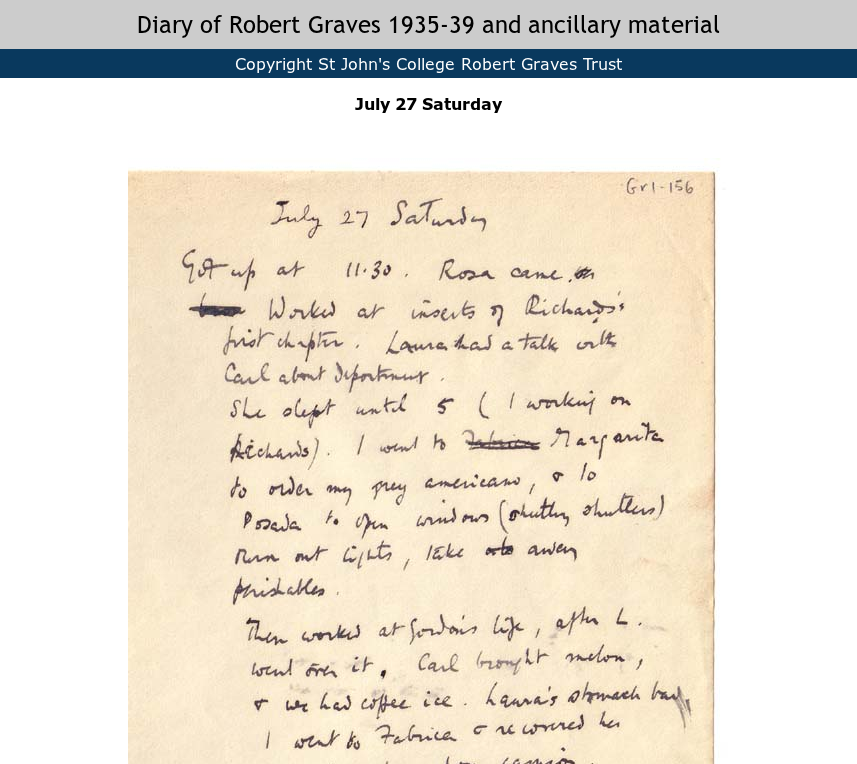 Diary of Robert Graves 1935-39 and ancillary material
Copyright St John's College Robert Graves Trust
July 27 Saturday
Gr1-156
July 27 Saturday
Got up at 11.30. Rosa came.
Worked at inserts of Richards's
first chapter. Laura had a talk with
Carl about deportment.
She slept until 5 (I working on
Richards). I went to Fabrica Margarita
to order my grey americano, & to
Posada to open windows (shutting shutters)
turn out lights, take away
perishables.
Then worked at Gordon's life, after L.
went over it. Carl brought melon,
& we had coffee ice. Laura's stomach bad,
I went to Fabrica & recovered her